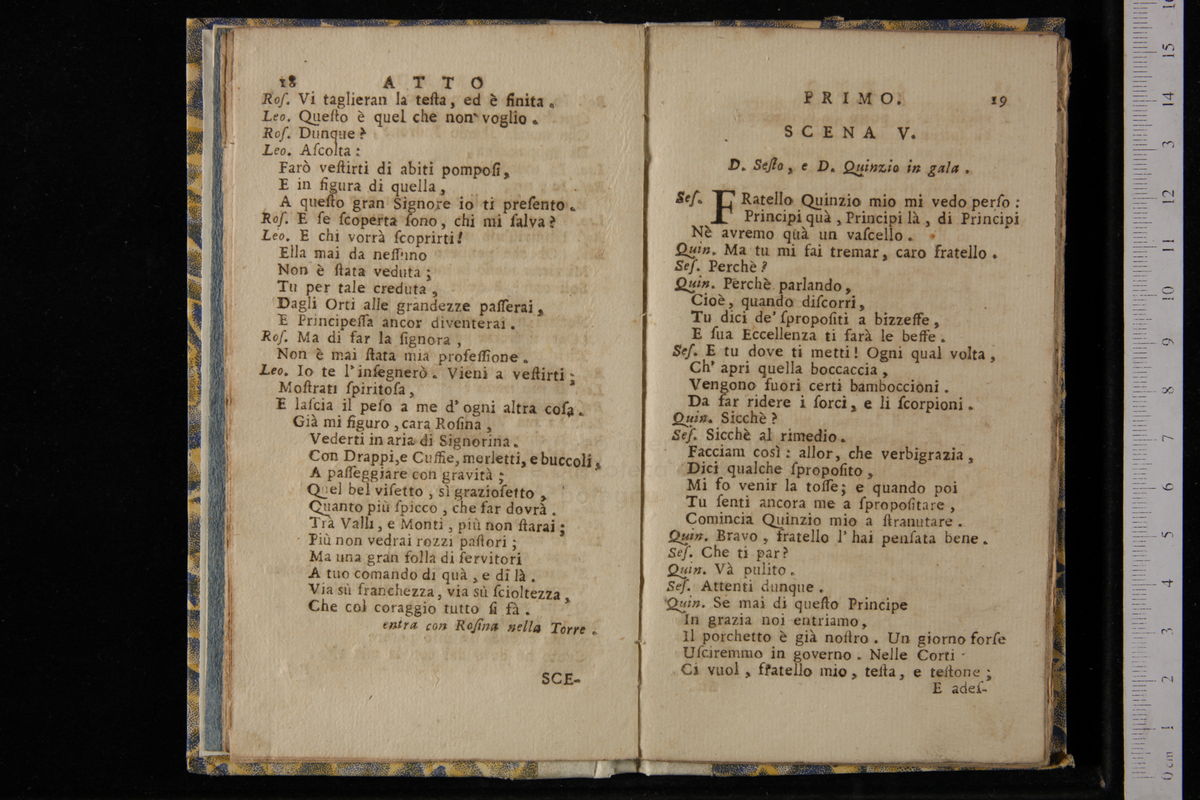 18 ATTO
Roſ. Vi taglieran la teſta, ed è finita.
Leo. Queſto è quel che non voglio.
Roſ. Dunque?
Leo. Aſcolta:
Farò veſtirti di abiti pompoſi,
E in figura di quella,
A queſto gran Signore io ti preſento.
Roſ. E ſe ſcoperta ſono, chi mi ſalva?
Leo. E chi vorrà ſcoprirti!
Ella mai da neſſuno
Non è ſtata veduta;
Tu per tale creduta,
Dagli Orti alle grandezze paſſerai,
E Principeſſa ancor diventerai.
Roſ. Ma di far la ſignora,
Non è mai ſtata mia profeſſione.
Leo. Io te l'inſegnerò. Vieni a veſtirti;
Moſtrati ſpiritoſa,
E laſcia il peſo a me d'ogni altra coſa.
Già mi figuro, cara Roſina,
Vederti in aria di Signorina.
Con Drappi, e Cuffie, merletti, e buccoli,
A paſſeggiare con gravità;
Quel bel viſetto, sì grazioſetto,
Quanto più ſpicco, che far dovrà.
Trà Valli, e Monti, più non ſtarai;
Più non vedrai rozzi paſtori;
Ma una gran folla di ſervitori
A tuo comando di quà, e di là.
Via sù franchezza, via sù ſcioltezza,
Che col coraggio tutto ſi fà.
entra con Roſina nella Torre.
SCE-
PRIMO. 19
SCENA V.
D. Seſto, e D. Quinzio in gala.
Seſ. FRatello Quinzio mio mi vedo perſo:
Principi quà, Principi là, di Principi
Nè avremo quà un vaſcello.
Quin. Ma tu mi fai tremar, caro fratello.
Seſ. Perchè?
Quin. Perchè parlando,
Cioè, quando diſcorri,
Tu dici de' ſpropoſiti a bizzeffe,
E ſua Eccellenza ti farà le beffe.
Seſ. E tu dove ti metti! Ogni qual volta,
Ch' apri quella boccaccia,
Vengono fuori certi bamboccioni.
Da far ridere i ſorci, e li ſcorpioni.
Quin. Sicchè?
Seſ. Sicchè al rimedio.
Facciam così: allor, che verbigrazia,
Dici qualche ſpropoſito,
Mi fo venir la toſſe; e quando poi
Tu ſenti ancora me a ſpropoſitare,
Comincia Quinzio mio a ſtranutare.
Quin. Bravo, fratello l' hai penſata bene.
Seſ. Che ti par?
Quin. Và pulito.
Seſ. Attenti dunque.
Quin. Se mai di queſto Principe
In grazia noi entriamo,
Il porchetto è già noſtro. Un giorno forſe
Uſciremmo in governo. Nelle Corti
Ci vuol, fratello mio, teſta, e teſtone;
E adeſ-
0 cm 1 2 3 4 5 6 7 8 9 10 11 12 13 14 15